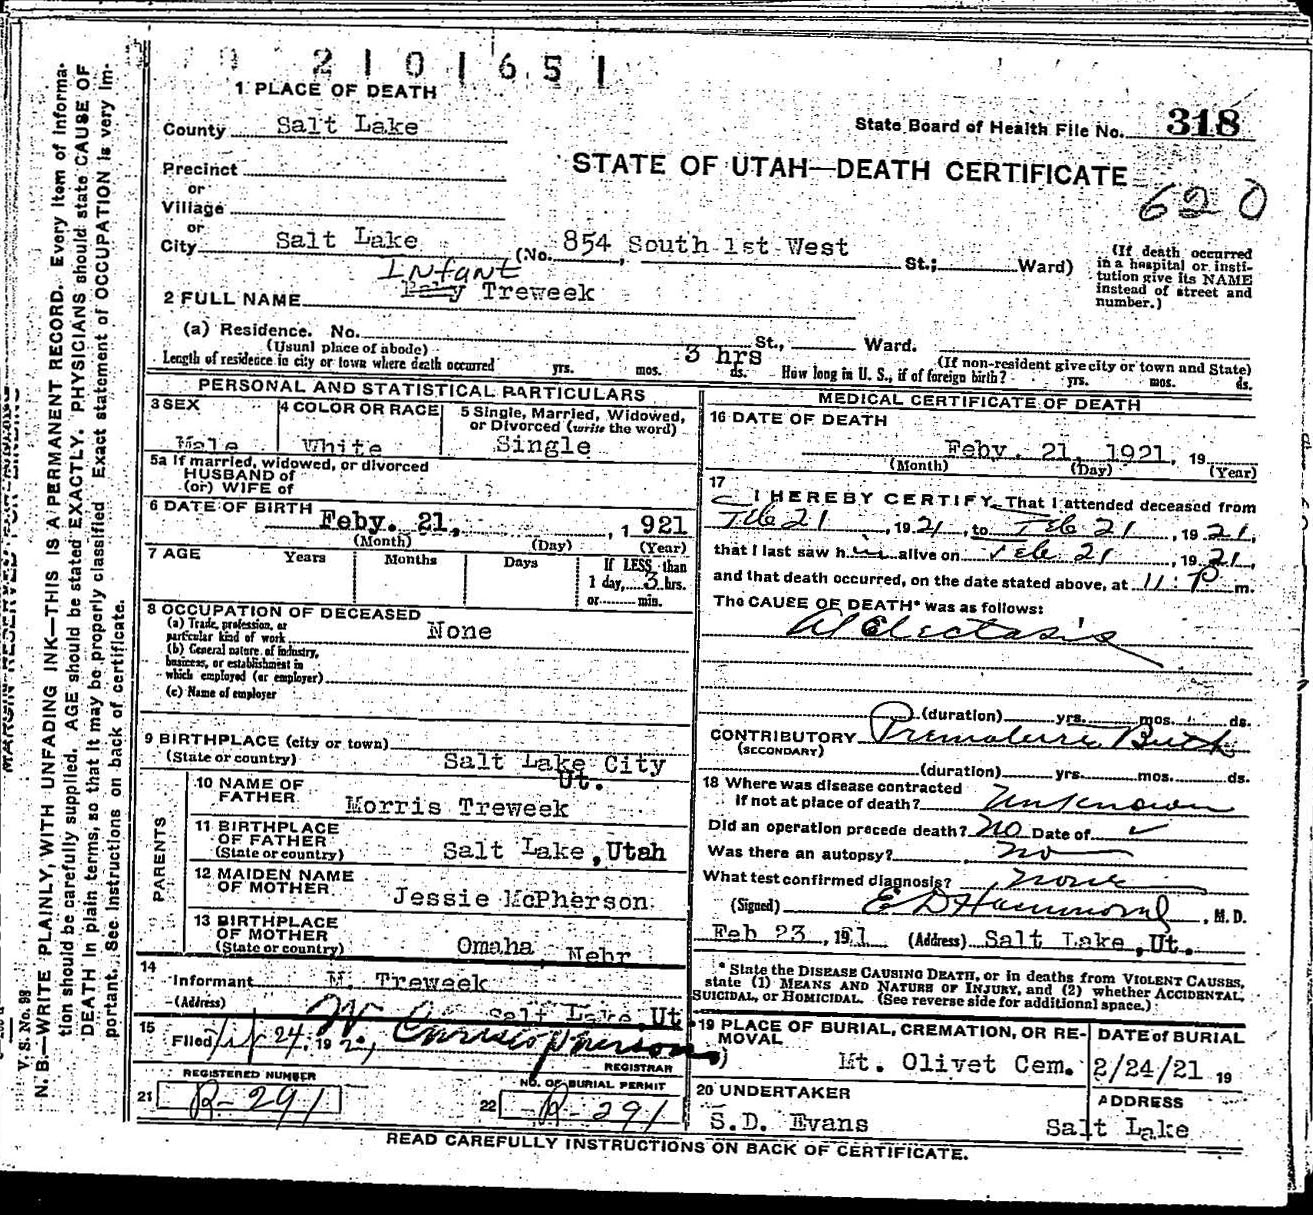 2101651
1 PLACE OF DEATH
County Salt Lake
State Board of Health File No. 318
STATE OF UTAH—DEATH CERTIFICATE
620
Precinct
or
Village
or
City Salt Lake (No. 854 South 1st West St.; Ward)
(If death occurred in a hospital or institution give its NAME instead of street and number.)
Infant
2 FULL NAME Treweek
(a) Residence. No. St., Ward.
(Usual place of abode) (If non-resident give city or town and State)
Length of residence in city or town where death occurred yrs. mos. 3 hrs ds. How long in U. S., if of foreign birth? yrs. mos. ds.
PERSONAL AND STATISTICAL PARTICULARS
3 SEX Male
4 COLOR OR RACE White
5 Single, Married, Widowed, or Divorced (write the word) Single
5a If married, widowed, or divorced
HUSBAND of
(or) WIFE of
6 DATE OF BIRTH Feby. 21, , 1921
(Month) (Day) (Year)
7 AGE Years Months Days If LESS than
1 day, 3 hrs.
or min.
8 OCCUPATION OF DECEASED
(a) Trade, profession, or
particular kind of work None
(b) General nature of industry,
business, or establishment in
which employed (or employer)
(c) Name of employer
9 BIRTHPLACE (city or town)
(State or country) Salt Lake City
Ut.
PARENTS
10 NAME OF
FATHER Morris Treweek
11 BIRTHPLACE
OF FATHER
(State or country) Salt Lake, Utah
12 MAIDEN NAME
OF MOTHER Jessie McPherson
13 BIRTHPLACE
OF MOTHER
(State or country) Omaha Nebr
14
Informant M. Treweek
(Address) Salt Lake, Ut
15
Filed 24, 192
REGISTRAR
REGISTERED NUMBER
21 R-291
NO. OF BURIAL PERMIT
22 R-291
MEDICAL CERTIFICATE OF DEATH
16 DATE OF DEATH
Feby. 21, 1921, 19
(Month) (Day) (Year)
17
I HEREBY CERTIFY, That I attended deceased from
Feb 21, 1921, to Feb 21, 1921,
that I last saw him alive on Feb 21, 1921,
and that death occurred, on the date stated above, at 11:P m.
The CAUSE OF DEATH* was as follows:
Atelectasis
(duration) yrs. mos. ds.
CONTRIBUTORY Premature Birth
(SECONDARY)
(duration) yrs. mos. ds.
18 Where was disease contracted
if not at place of death? Unknown
Did an operation precede death? No Date of
Was there an autopsy? no
What test confirmed diagnosis? none
(Signed) E D Hammond, M. D.
Feb 23, 1921 (Address) Salt Lake, Ut.
* State the DISEASE CAUSING DEATH, or in deaths from VIOLENT CAUSES,
state (1) MEANS AND NATURE OF INJURY, and (2) whether ACCIDENTAL,
SUICIDAL, or HOMICIDAL. (See reverse side for additional space.)
19 PLACE OF BURIAL, CREMATION, OR REMOVAL
Mt. Olivet Cem.
DATE of BURIAL
2/24/21 19
20 UNDERTAKER
S.D. Evans
ADDRESS
Salt Lake
READ CAREFULLY INSTRUCTIONS ON BACK OF CERTIFICATE.
V. S. No. 99
MARGIN RESERVED FOR BINDING
N. B.—WRITE PLAINLY, WITH UNFADING INK—THIS IS A PERMANENT RECORD. Every item of informa-
tion should be carefully supplied. AGE should be stated EXACTLY. PHYSICIANS should state CAUSE OF
DEATH in plain terms, so that it may be properly classified. Exact statement of OCCUPATION is very im-
portant. See instructions on back of certificate.